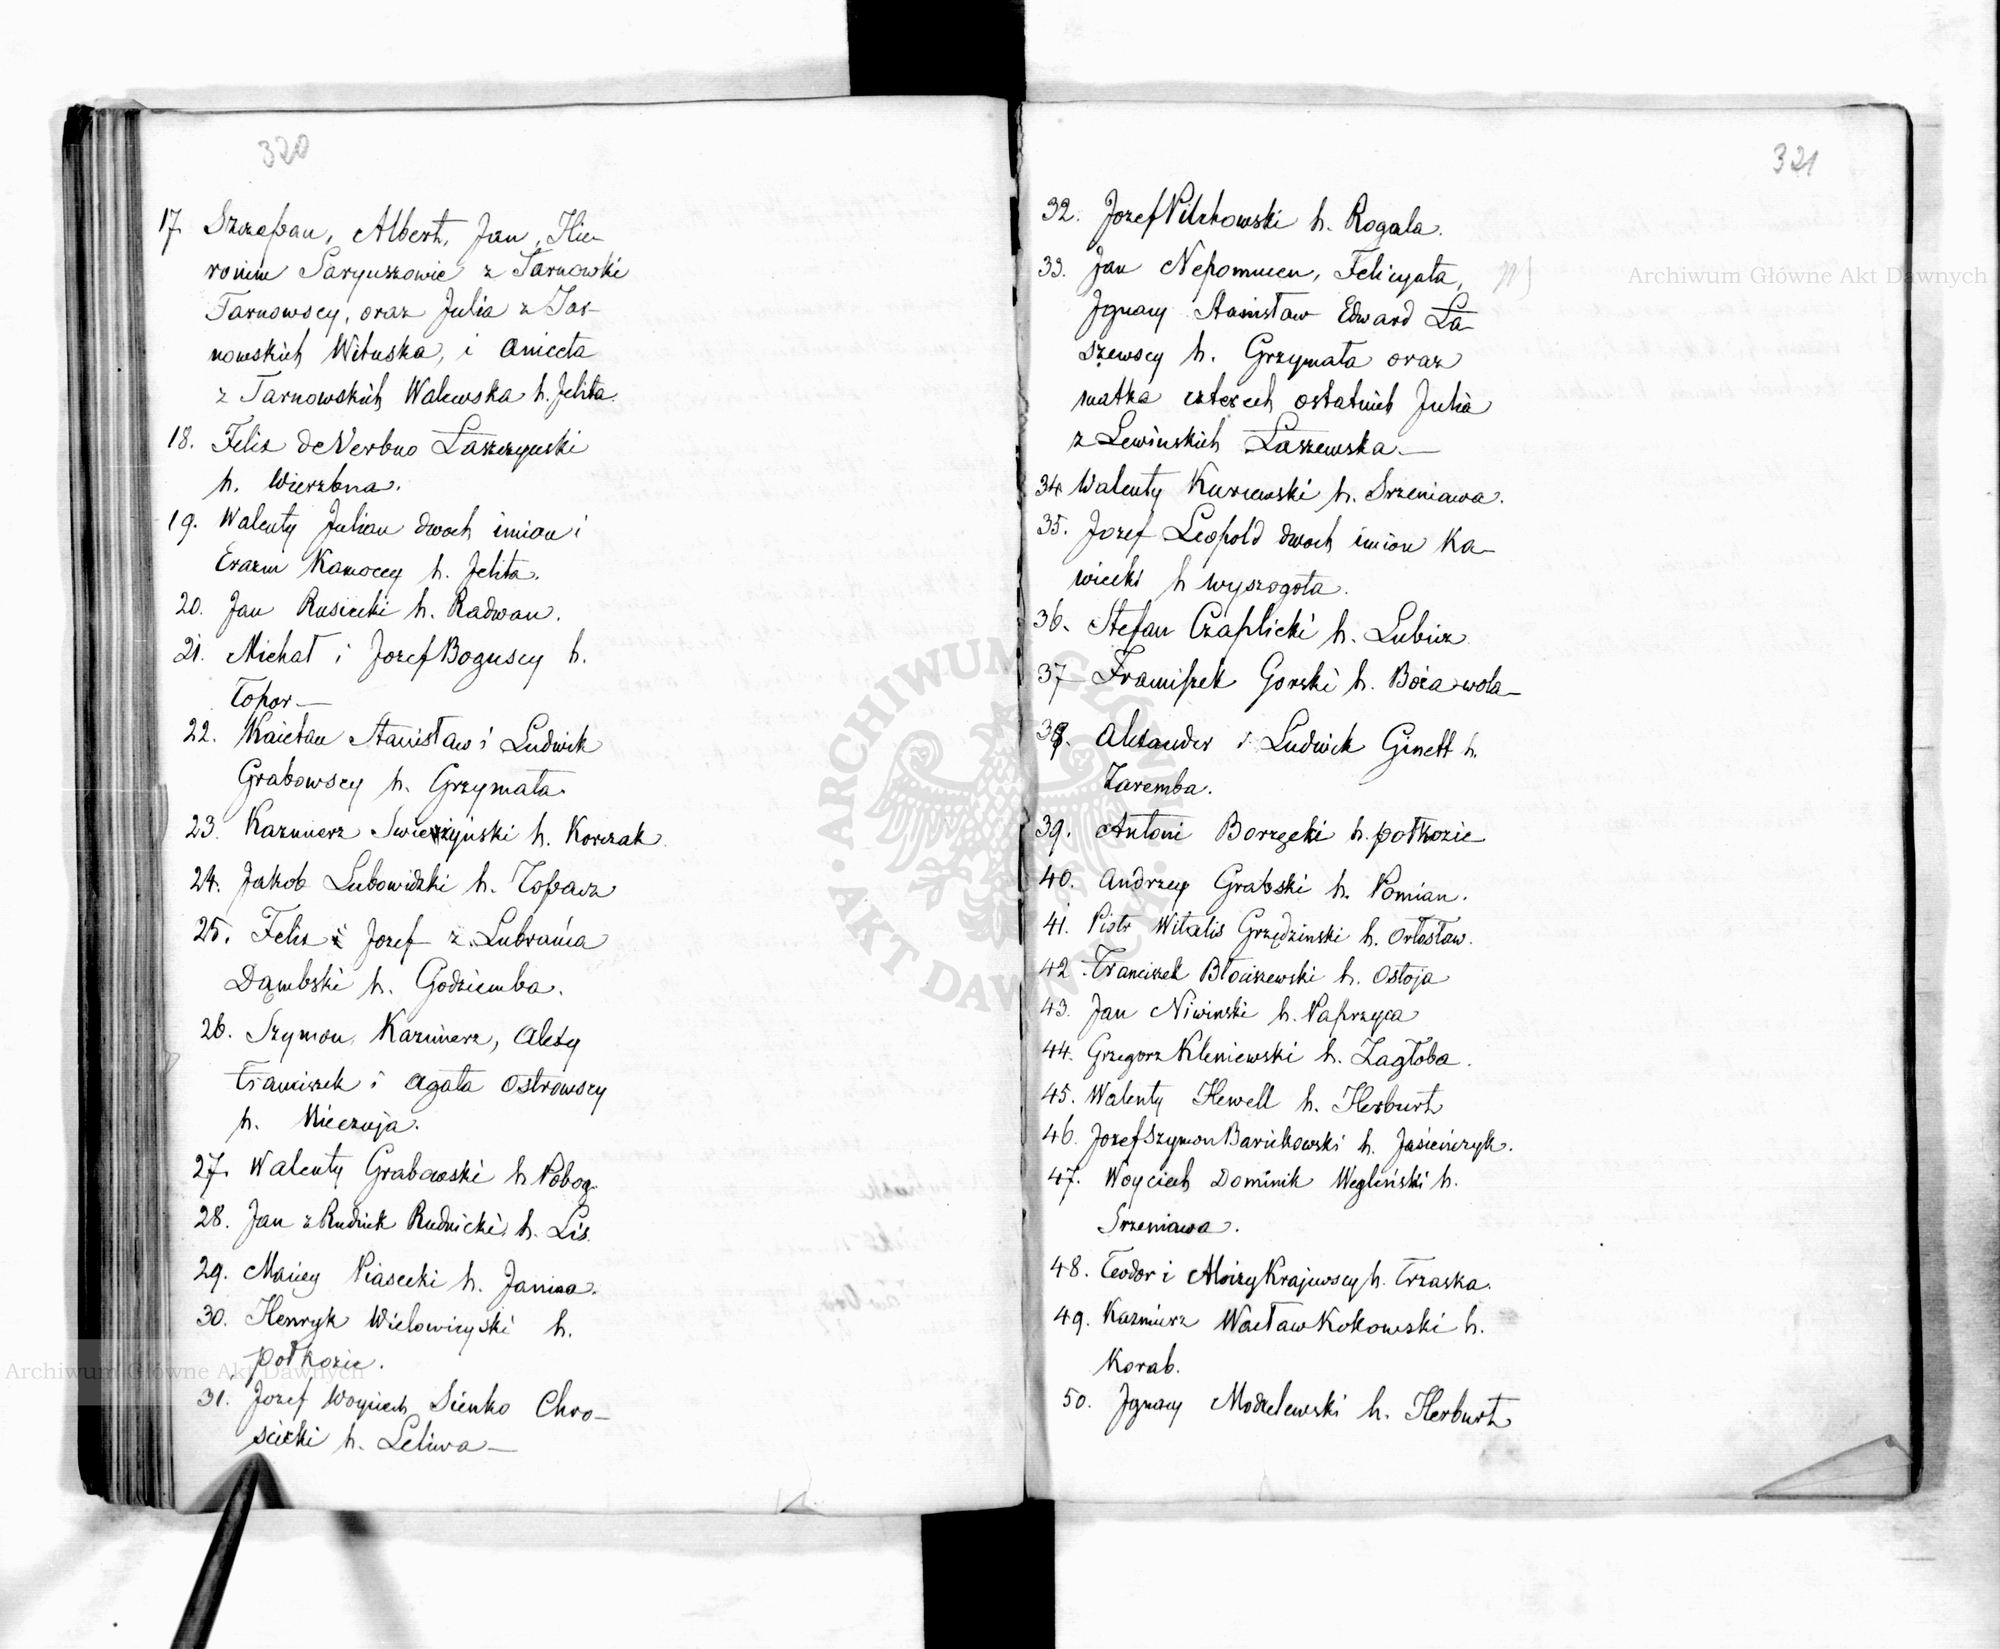 320
17. Szczepan, Albert, Jan, Hie-
ronim Saryuszowie z Tarnowki
Tarnowscy, oraz Julia z Tar-
nowskich Wituska, i Anieeta
z Tarnowskich Walewska h. Jelita.
18. Felix de Verbno Łaszczyński
h. Wierzbna.
19. Walenty Julian dwoch imion i
Erazm Kamoccy h. Jelita.
20. Jan Rusiecki h. Radwan.
21. Michał i Jozef Boguscy h.
Topor—
22. Kaietan Stanisław i Ludwik
Grabowscy h. Grzymała.
23. Kazimierz Swieżyński h. Korczak.
24. Jakob Lubowidzki h. Topacz
25. Felix i Jozef z Lubrańca
Dąmbski h. Godziemba.
26. Szymon, Kazimierz, Alexy
Franciszek i Agata Ostrowscy
h. Nieczuja.
27. Walenty Grabowski h. Pobog.
28. Jan z Rudnik Rudnicki h. Lis.
29. Maciey Piasecki h. Janina.
30. Henryk Wielowieyski h.
Połkozic.
31. Jozef Woyciech Sienko Chro-
ścicki h. Leliwa—
321
32. Jozef Pilchowski h. Rogala.
33. Jan Nepomucen, Felicyata,
Jgnacy Stanisław Edward Ła-
szewscy h. Grzymała oraz
matka czterech ostatnich Julia
z Lewinskich Łaszewska—
34. Walenty Kurcewski h. Srzeniawa.
35. Jozef Leopold dwoch imion Ka-
wiecki h Wyszogota.
36. Stefan Czaplicki h. Lubicz
37. Franciszek Gorski h. Boża wola—
38. Alexander i Ludwik Ginett h.
Zaremba.
39. Antoni Borzęcki h. połkozic
40. Andrzey Grabski h. Pomian.
41. Piotr Witalis Grzędzinski h. Ortosław.
42. Franciszek Błociszewski h. Ostoja
43. Jan Niwinski h. Paprzyca
44. Grzegorz Kleniewski h. Zagłoba.
45. Walenty Hewell h. Herburt
46. Jozef Szymon Barcikowski h. Jasieńczyk.
47. Woyciech Dominik Węgliński h.
Srzeniawa.
48. Teodor i Aloizy Krajewscy h. Trzaska.
49. Kazmierz Wacław Kokowski h.
Korab.
50. Jgnacy Modzelewski h. Herburt
Archiwum Główne Akt Dawnych
Archiwum Główne Akt Dawnych
ARCHIWUM GŁÓWNE
AKT DAWNYCH